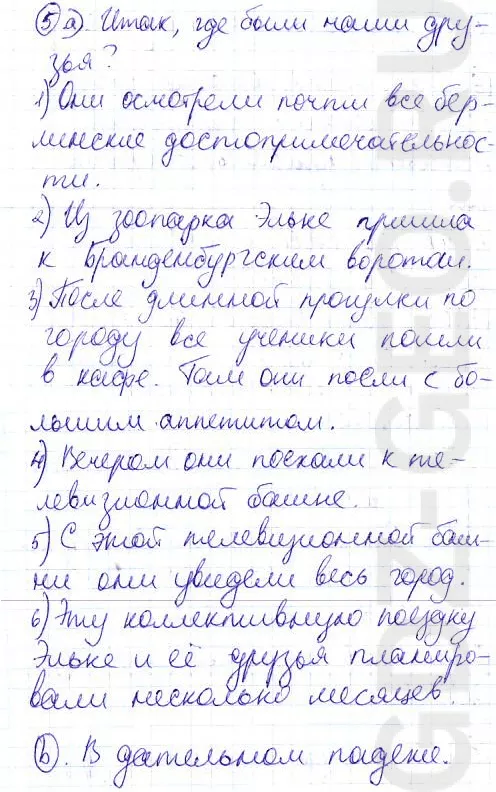 5 а) Итак, где были наши дру-
зья?
1) Они осмотрели почти все бер-
линские достопримечательнос-
ти.
2) Из зоопарка Эльке пришла
к Бранденбургским воротам.
3) После длинной прогулки по
городу все ученики пошли
в кафе. Там они поели с бо-
льшим аппетитом.
4) Вечером они поехали к те-
левизионной башне.
5) С этой телевизионной баш-
ни они увидели весь город.
6) Эту коллективную поездку
Эльке и её друзья планиро-
вали несколько месяцев.
b. В дательном падеже.
GDZ-GEO.RU